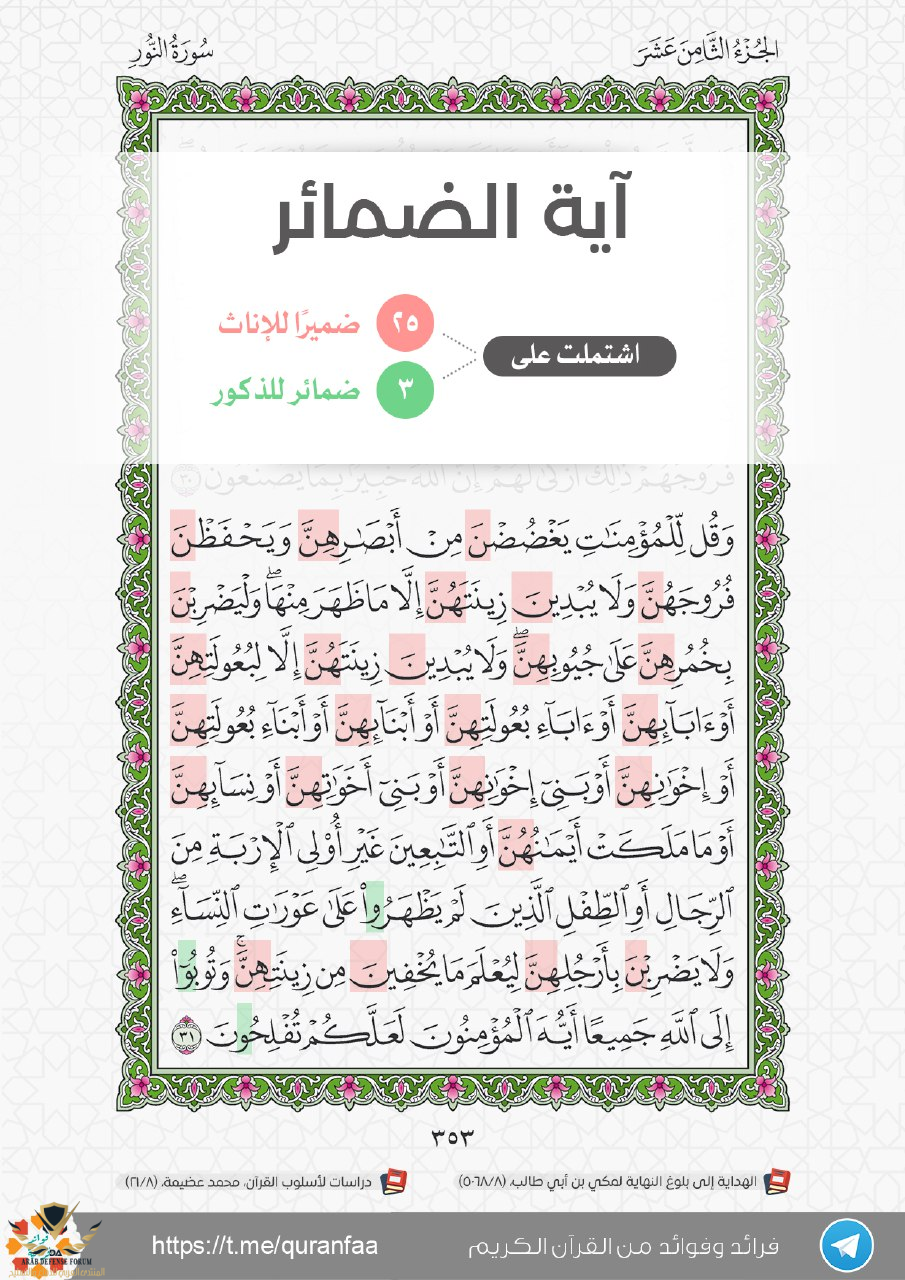 الجُزْءُ الثَّامِنَ عَشَرَ
سُورَةُ النُّورِ
آية الضمائر
اشتملت على
٢٥ ضميرًا للإناث
٣ ضمائر للذكور
فُرُوجَهُمْ ذَٰلِكَ أَزْكَىٰ لَهُمْ إِنَّ ٱللَّهَ خَبِيرٌۢ بِمَا يَصْنَعُونَ ٣٠
وَقُل لِّلْمُؤْمِنَٰتِ يَغْضُضْنَ مِنْ أَبْصَٰرِهِنَّ وَيَحْفَظْنَ
فُرُوجَهُنَّ وَلَا يُبْدِينَ زِينَتَهُنَّ إِلَّا مَا ظَهَرَ مِنْهَاۖ وَلْيَضْرِبْنَ
بِخُمُرِهِنَّ عَلَىٰ جُيُوبِهِنَّۖ وَلَا يُبْدِينَ زِينَتَهُنَّ إِلَّا لِبُعُولَتِهِنَّ
أَوْ ءَابَآئِهِنَّ أَوْ ءَابَآءِ بُعُولَتِهِنَّ أَوْ أَبْنَآئِهِنَّ أَوْ أَبْنَآءِ بُعُولَتِهِنَّ
أَوْ إِخْوَٰنِهِنَّ أَوْ بَنِىٓ إِخْوَٰنِهِنَّ أَوْ بَنِىٓ أَخَوَٰتِهِنَّ أَوْ نِسَآئِهِنَّ
أَوْ مَا مَلَكَتْ أَيْمَٰنُهُنَّ أَوِ ٱلتَّٰبِعِينَ غَيْرِ أُو۟لِى ٱلْإِرْبَةِ مِنَ
ٱلرِّجَالِ أَوِ ٱلطِّفْلِ ٱلَّذِينَ لَمْ يَظْهَرُوا۟ عَلَىٰ عَوْرَٰتِ ٱلنِّسَآءِۖ
وَلَا يَضْرِبْنَ بِأَرْجُلِهِنَّ لِيُعْلَمَ مَا يُخْفِينَ مِن زِينَتِهِنَّۚ وَتُوبُوٓا۟
إِلَى ٱللَّهِ جَمِيعًا أَيُّهَ ٱلْمُؤْمِنُونَ لَعَلَّكُمْ تُفْلِحُونَ ٣١
٣٥٣
الهداية إلى بلوغ النهاية لمكي بن أبي طالب، (٥٠٦٨/٨)
دراسات لأسلوب القرآن، محمد عضيمة، (٢١/٨)
فرائد وفوائد من القرآن الكريم
https://t.me/quranfaa
ARAB DEFENSE FORUM